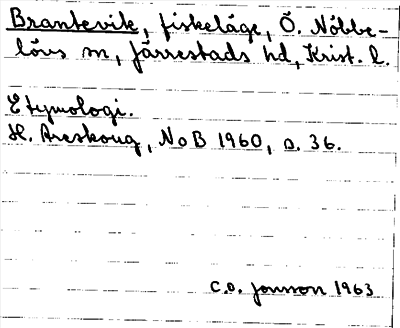 Brantevik, fiskeläge, Ö. Nöbbe-
lövs sn, Järrestads hd, Krist. l.
Etymologi.
H. Areskoug, NoB 1960, s. 36.
C.O. Jonsson 1963